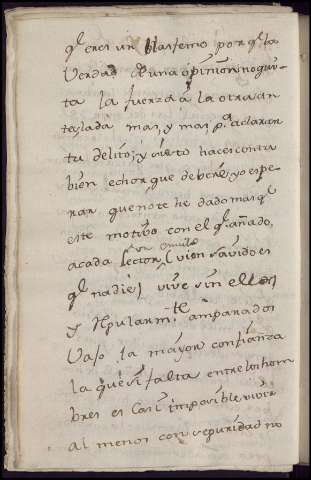 q.^e eres un blasfemo porq.^e la
Verdad de una opinion no qui-
ta la fuerza á la otra an
tes la da mas, y mas p.^a aclarar
tu delito; y si esto haces contra
bien echor, que deberé, yo espe-
rar que note he dado mas q.^e
este motibo con el q.^e añado,
acada lector un emulo
bien savido es
q.^e nadie vive sin ellos
y Ppularm.^te amparados
Vajo la mayor confianza
la que si falta entre los hom
bres es Casi imposible vivir
al menos con seguridad no